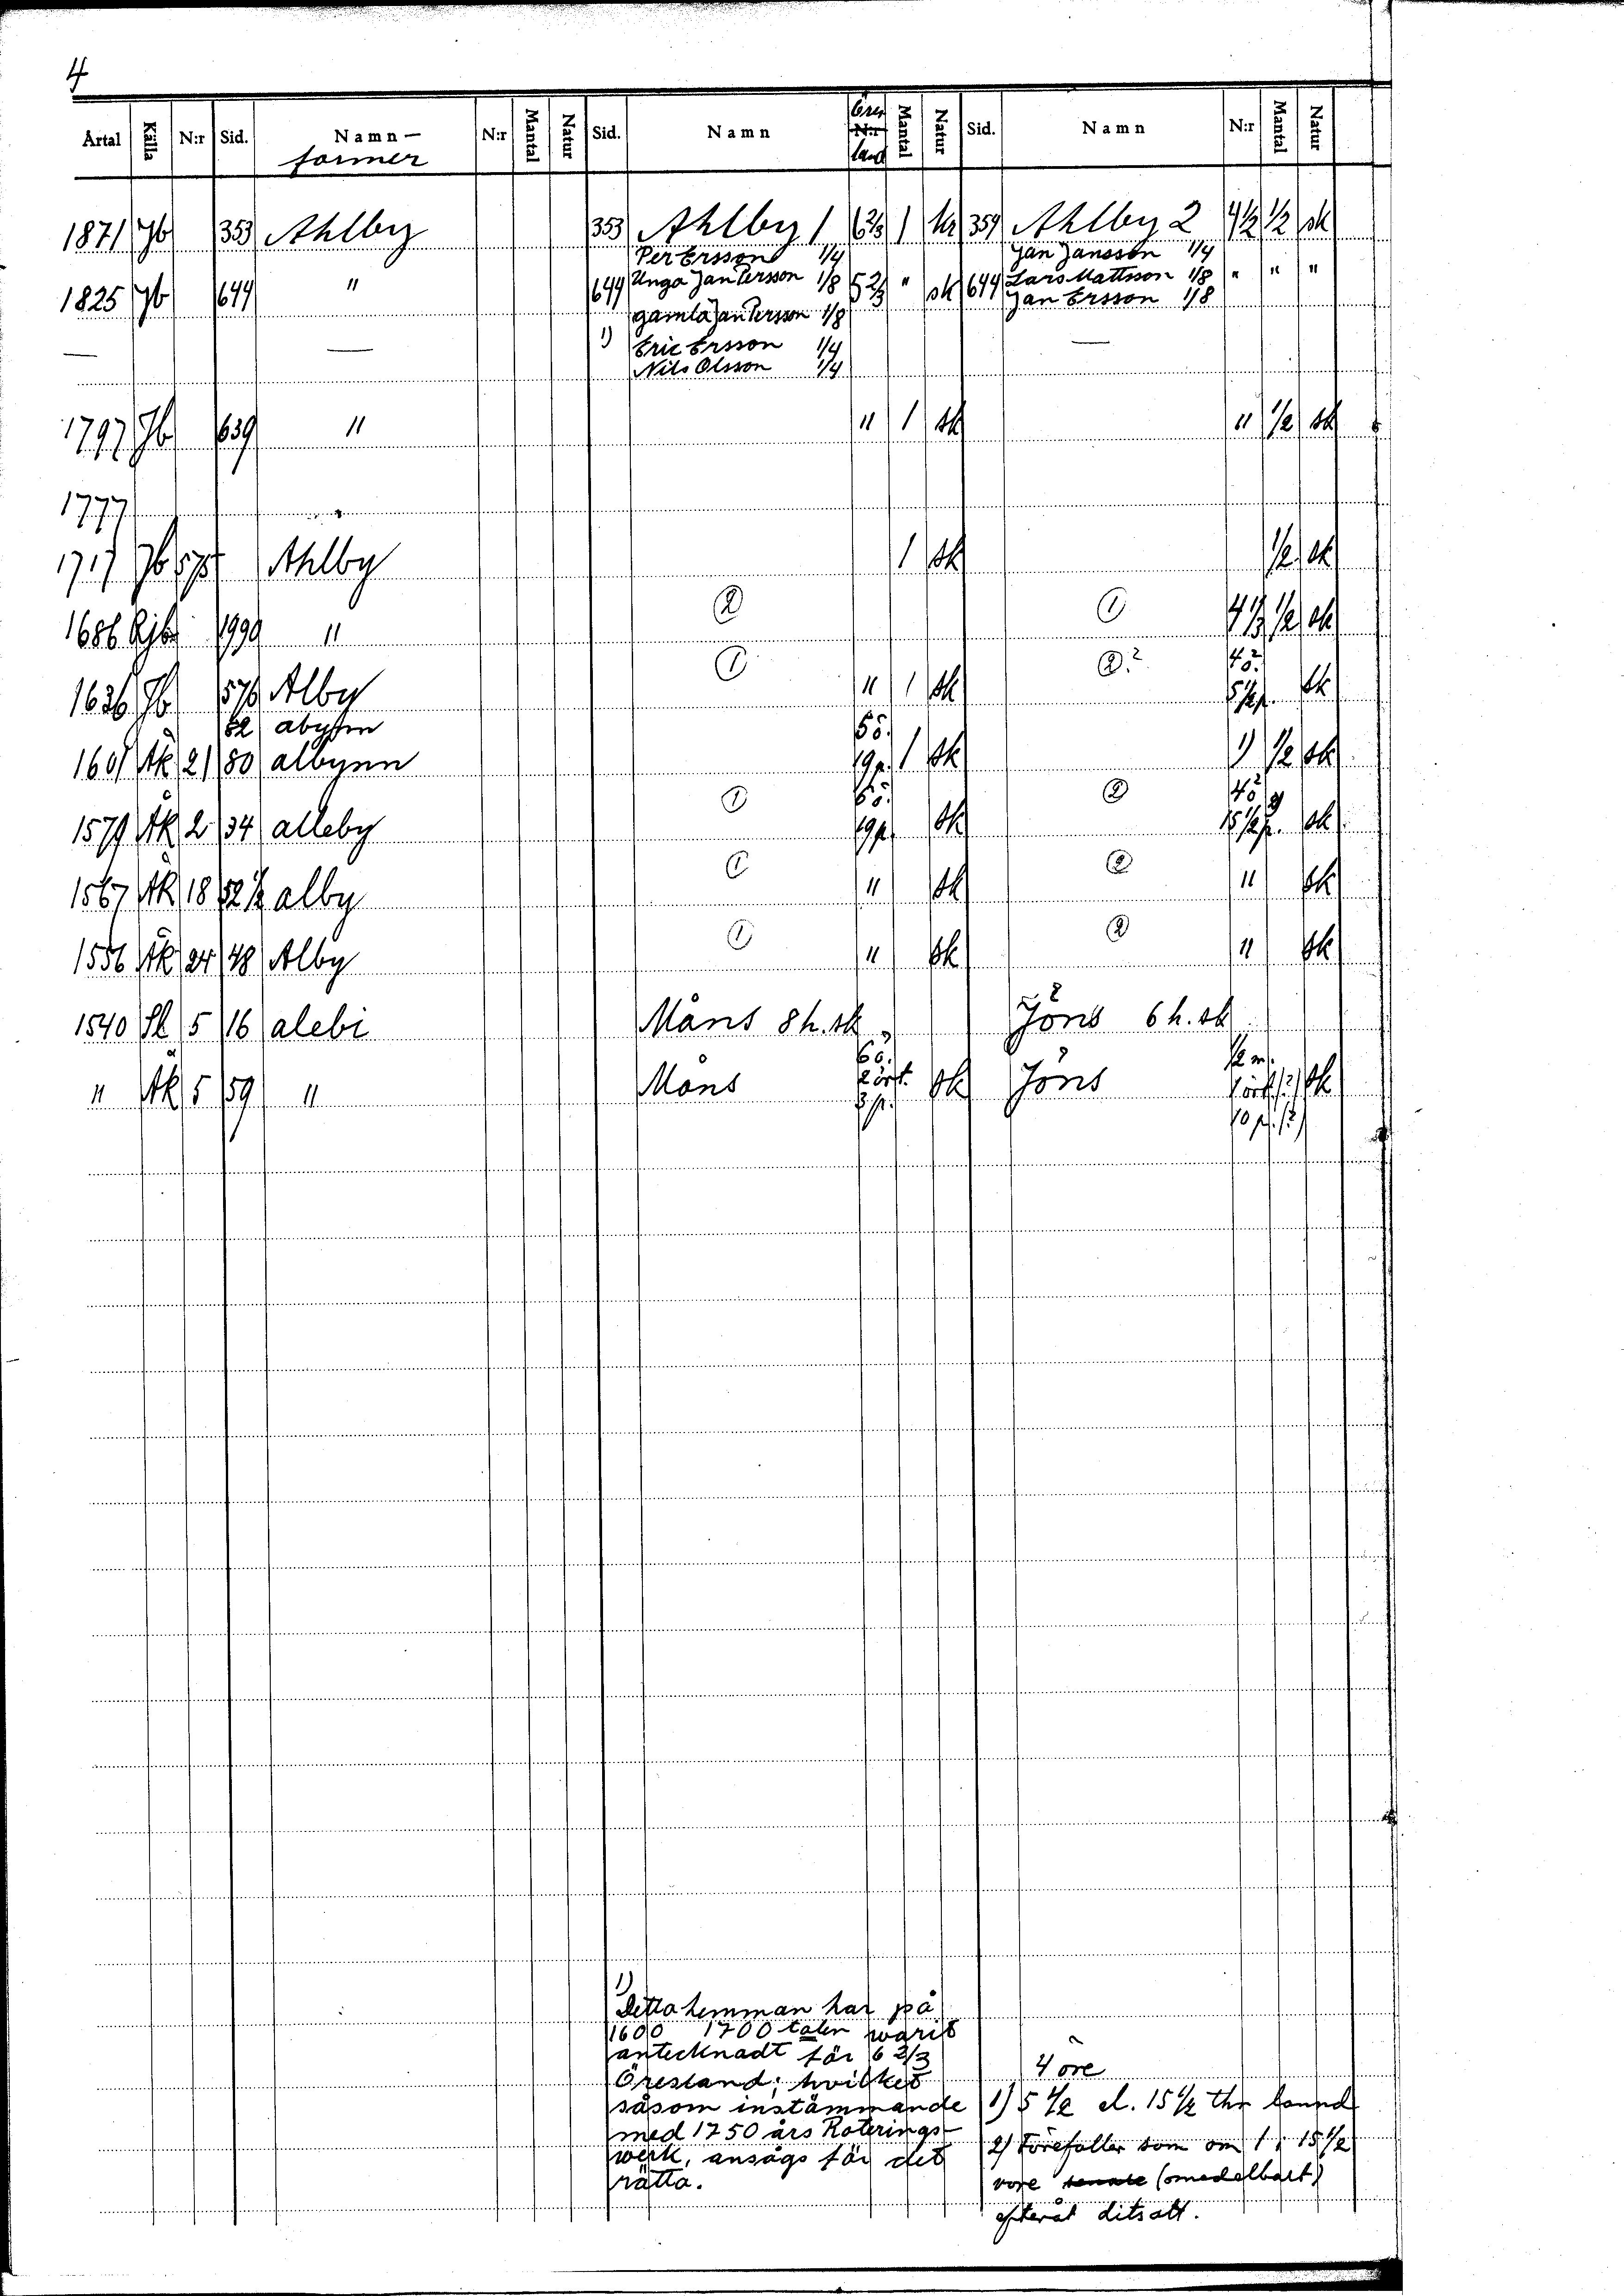 4
Årtal Källa N:r Sid. Namn — N:r Mantal Natur Sid. Namn Öres N:r land Mantal Natur Sid. Namn N:r Mantal Natur
former
1871 Jb 353 Ahlby 353 Ahlby 1 6 2/3 1 kr 354 Ahlby 2 4 1/2 1/2 sk
Per Ersson 1/4 Jan Jansson 1/4
1825 Jb 644 " 644 Unga Jan Persson 1/8 5 2/3 " sk 644 Lars Mattsson 1/8 " " "
gamla Jan Persson 1/8 Jan Ersson 1/8
— — 1) Eric Ersson 1/4 —
Nils Olsson 1/4
1797 Jb 639 " " 1 sk " 1/2 sk
1777
1717 Jb Ahlby 1 sk 1/2 sk
1686 1999 " 2 1 4 1/3 1/2 sk
1636 Jb 576 Alby 1 " 1 sk 2.² 4ö. sk
82 abysfin 6ö.
1601 Äk 21 80 albynn 19p. 1 sk 1) 1/2 sk
1579 Äk 2 34 alleby 1 6ö. 19p. sk 2 4ö 2) 15 1/2 p. sk
1567 Äk 18 52 1/2 alby 1 " sk 2 " sk
1556 Äk 24 48 Alby 1 " sk 2 " sk
1540 Sl 5 16 alebi Måns 8 h. sk Jöns 6 h. sk
" Äk 5 59 " Måns 6ö. 2 ört. 3 p. sk Jöns 1/2 m. 1 ört. (?) 10 p. (?) sk
1)
Detta hemman har på
1600 1700 talen warit
antecknadt för 6 2/3
Öresland; hvilket
såsom instämmande
med 1750 års Roterings-
werk, ansågs för det
rätta.
4 öre
1) 5 1/2 el. 15 1/2 thr lannd
2) Förefaller som om 1 i 15 1/2
vore (omedelbart)
efteråt ditsatt.